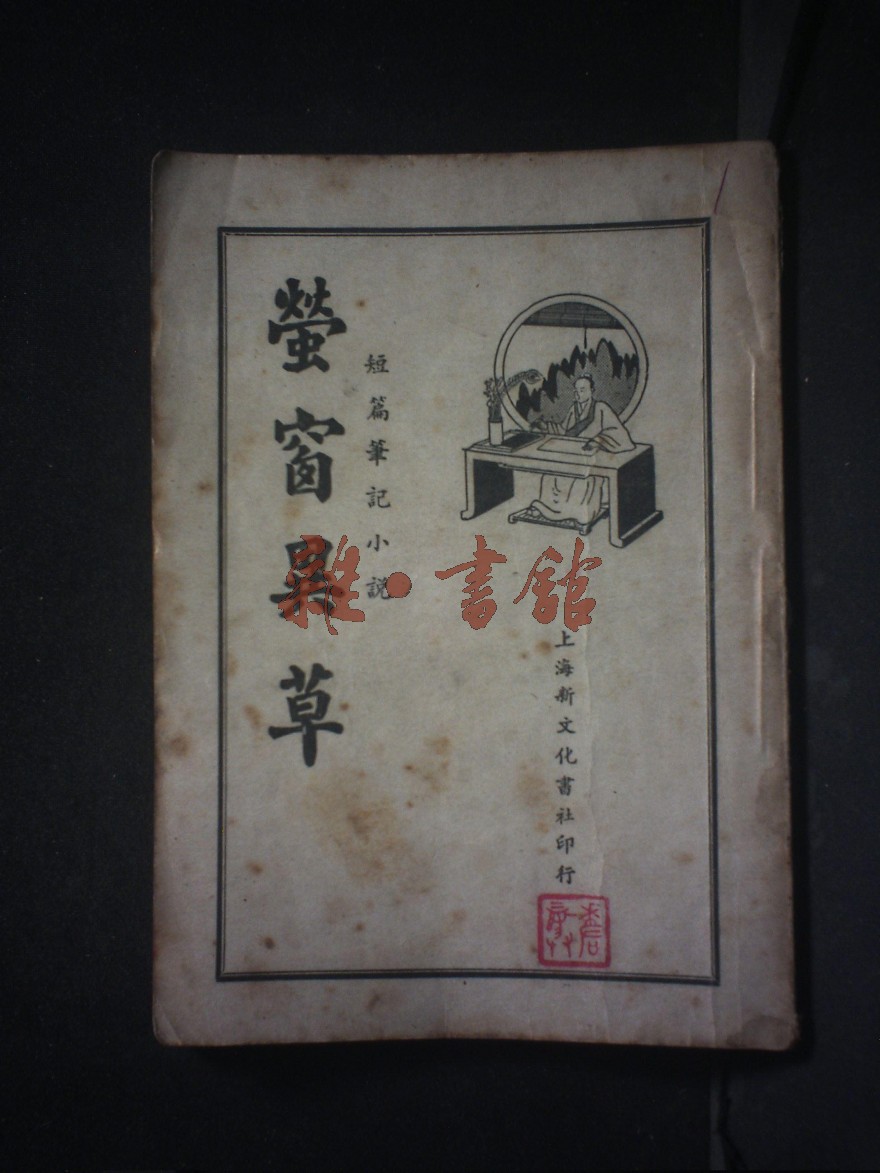 螢窗異草
短篇筆記小説
上海新文化書社印行
雜·書舘